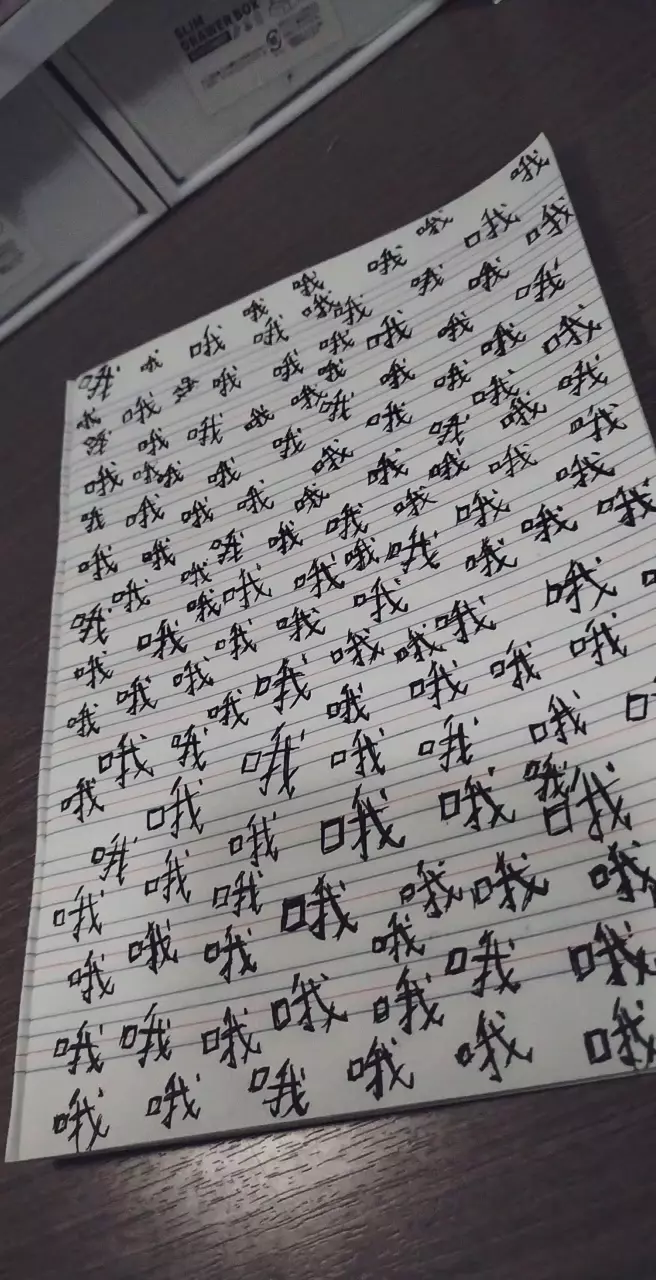 SLIM
DRAWER BOX
哦 哦 哦 哦 哦 哦 哦 哦
哦 哦 哦 哦 哦 哦 哦 哦 哦 哦
哦 哦 哦 哦 哦 哦 哦 哦 哦 哦
哦 哦 哦 哦 哦 哦 哦 哦 哦 哦 哦
哦 哦 哦 哦 哦 哦 哦 哦 哦 哦
哦 哦 哦 哦 哦 哦 哦 哦 哦 哦
哦 哦 哦 哦 哦 哦 哦 哦 哦 哦
哦 哦 哦 哦 哦 哦 哦 哦 哦
哦 哦 哦 哦 哦 哦 哦 哦 哦 哦
哦 哦 哦 哦 哦 哦
哦 哦 哦 哦 哦 哦
哦 哦 哦 哦 哦 哦
哦 哦 哦 哦 哦 哦 哦
哦 哦 哦 哦 哦 哦
哦 哦 哦 哦 哦
哦 哦 哦 哦 哦 哦